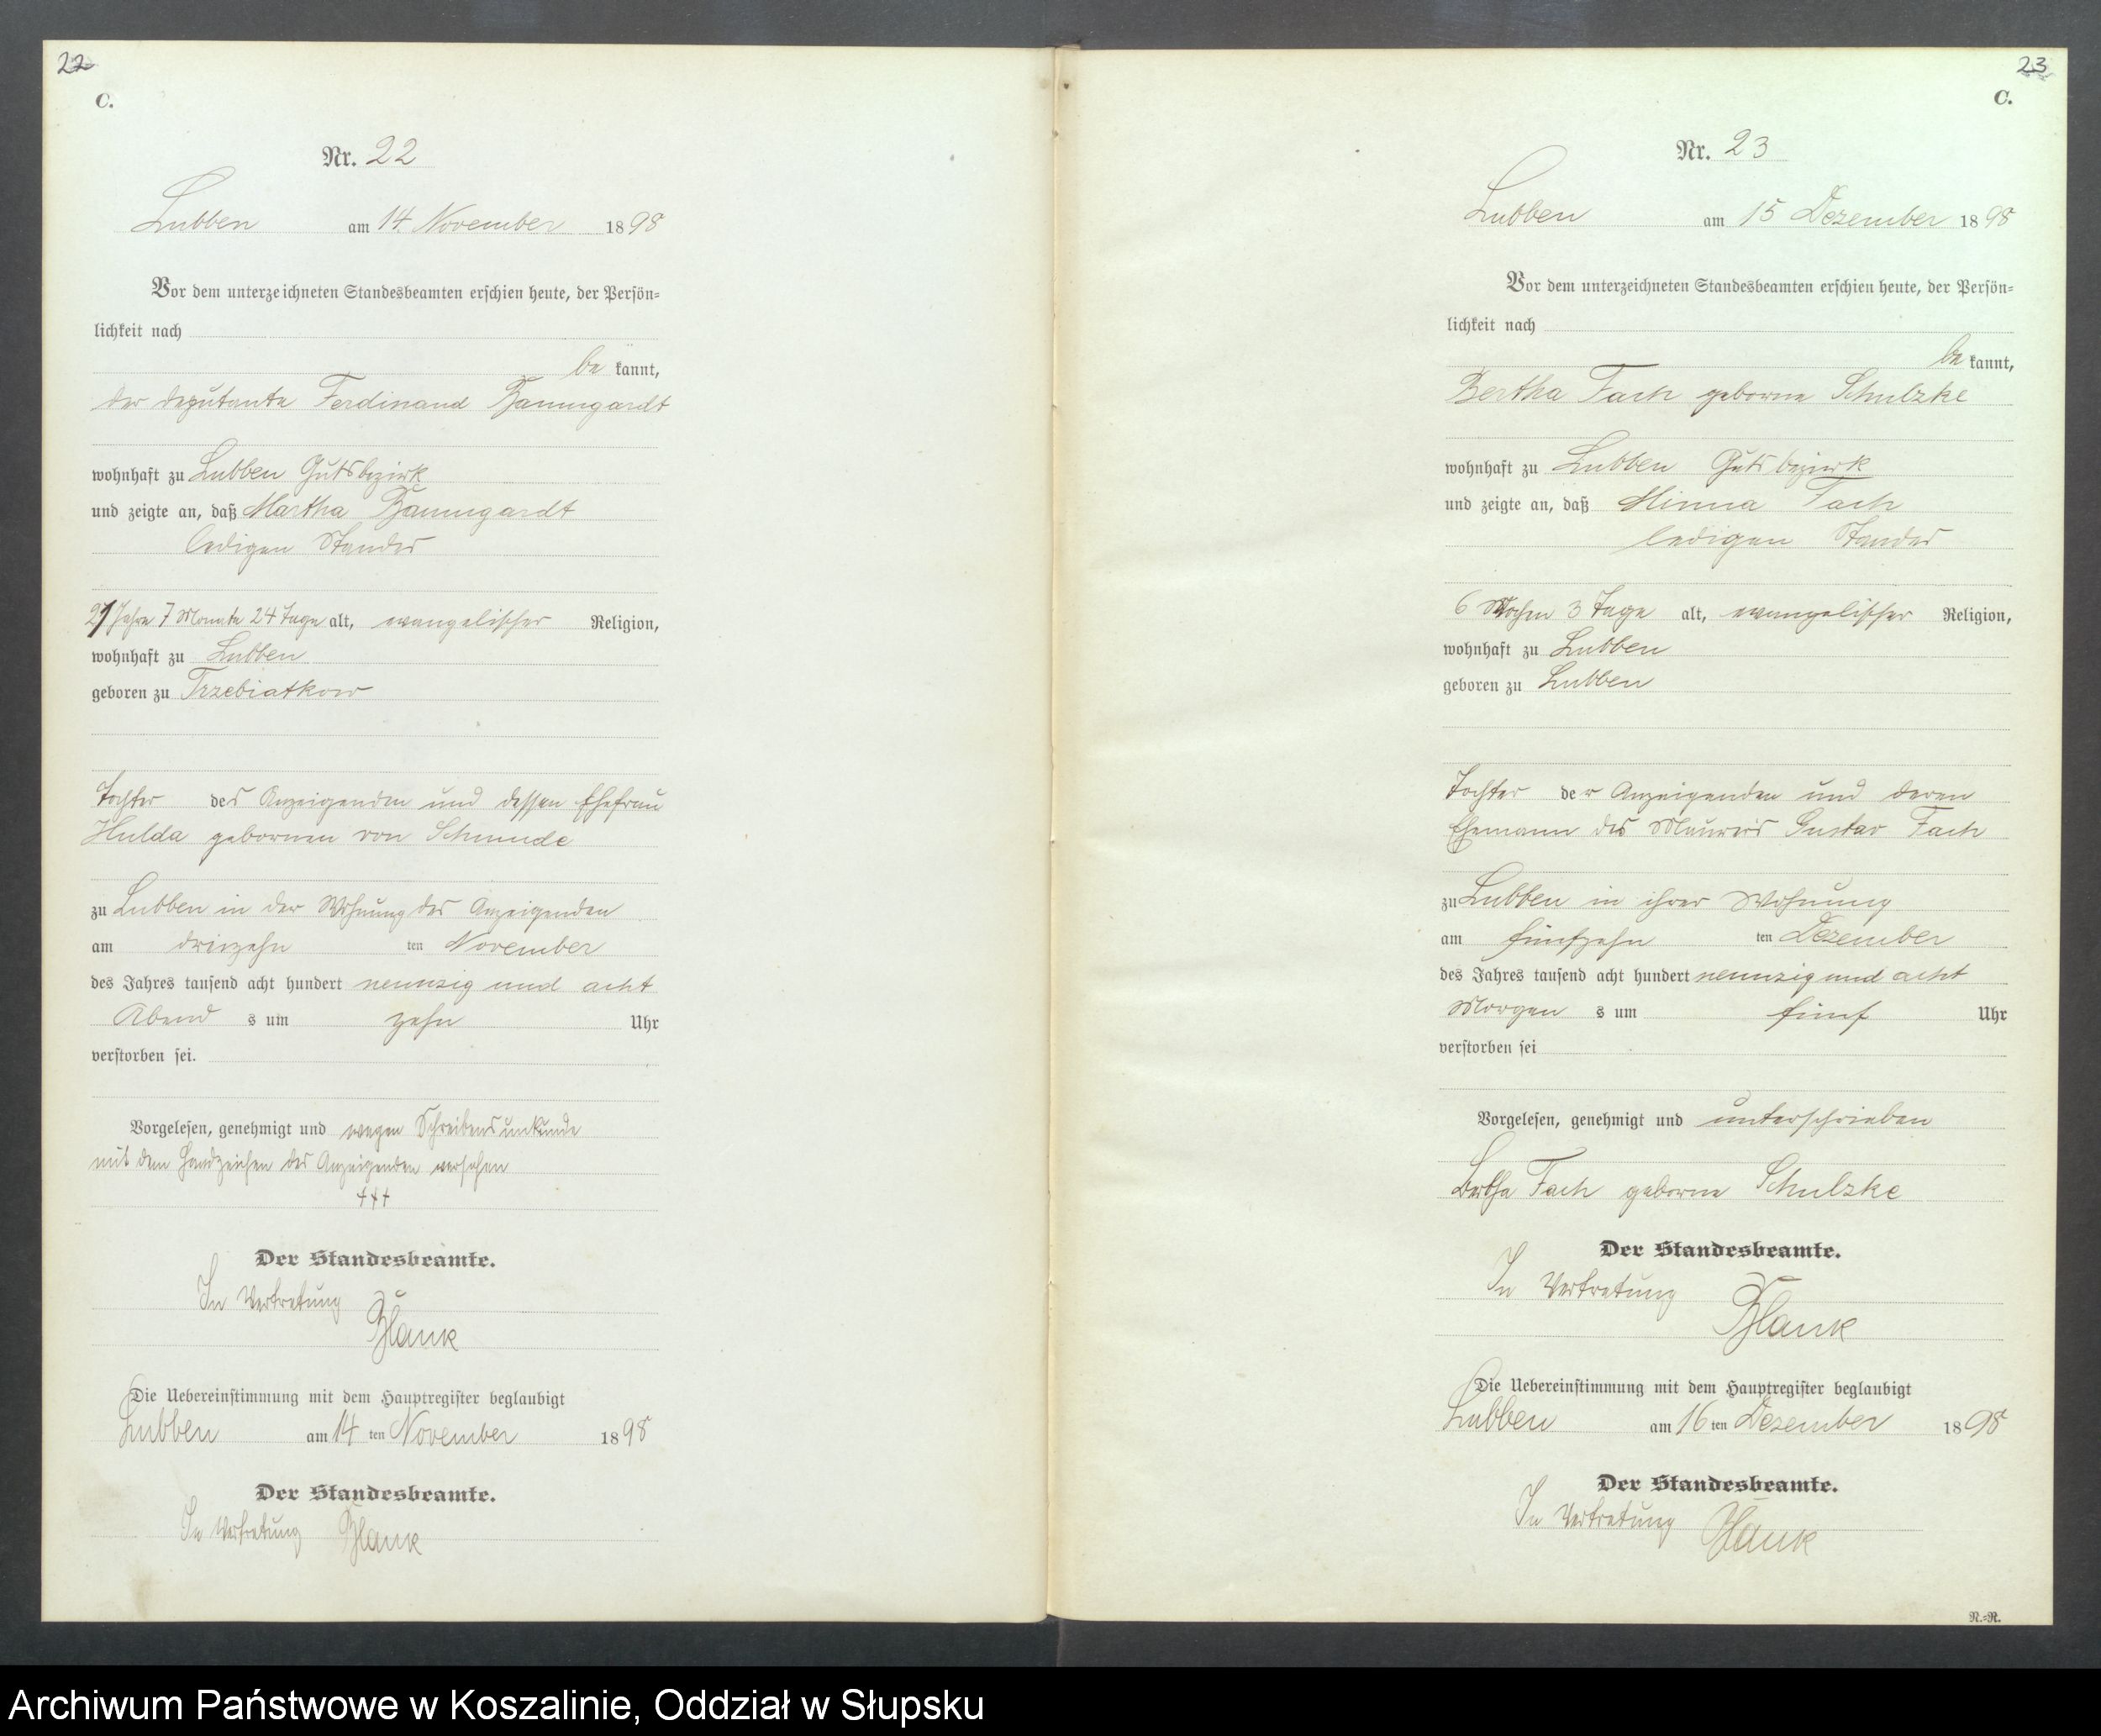 22
C.
Nr. 22
Lubben am 14 November 1898
Vor dem unterzeichneten Standesbeamten erschien heute, der Persön=
lichkeit nach
be kannt,
der deputante Ferdinand Baumgardt
wohnhaft zu Lubben Gutsbezirk
und zeigte an, daß Martha Baumgardt
ledigen Standes
21 Jahre 7 Monate 24 Tage alt, evangelischer Religion,
wohnhaft zu Lubben
geboren zu Trzebiatkow
Tochter des Anzeigenden und dessen Ehefrau
Hulda gebornen von Schmude
zu Lubben in der Wohnung des Anzeigenden
am dreizehn ten November
des Jahres tausend acht hundert neunzig und acht
Abend s um zehn Uhr
verstorben sei.
Vorgelesen, genehmigt und wegen Schreibensunkunde
mit dem Handzeichen des Anzeigenden versehen
+++
Der Standesbeamte.
In Vertretung
Blank
Die Uebereinstimmung mit dem Hauptregister beglaubigt
Lubben am 14 ten November 1898
Der Standesbeamte.
In Vertretung Blank
23
C.
Nr. 23
Lubben am 15 Dezember 1898
Vor dem unterzeichneten Standesbeamten erschien heute, der Persön=
lichkeit nach
be kannt,
Bertha Fach geborne Schulzke
wohnhaft zu Lubben Gutsbezirk
und zeigte an, daß Minna Fach
ledigen Standes
6 Wochen 3 Tage alt, evangelischer Religion,
wohnhaft zu Lubben
geboren zu Lubben
Tochter der Anzeigenden und deren
Ehemann des Maurers Gustav Fach
zu Lubben in ihrer Wohnung
am fünfzehn ten Dezember
des Jahres tausend acht hundert neunzig und acht
Morgen s um fünf Uhr
verstorben sei
Vorgelesen, genehmigt und unterschrieben
Bertha Fach geborne Schulzke
Der Standesbeamte.
In Vertretung
Blank
Die Uebereinstimmung mit dem Hauptregister beglaubigt
Lubben am 16 ten Dezember 1898
Der Standesbeamte.
In Vertretung Blank
N.=R.
Archiwum Państwowe w Koszalinie, Oddział w Słupsku